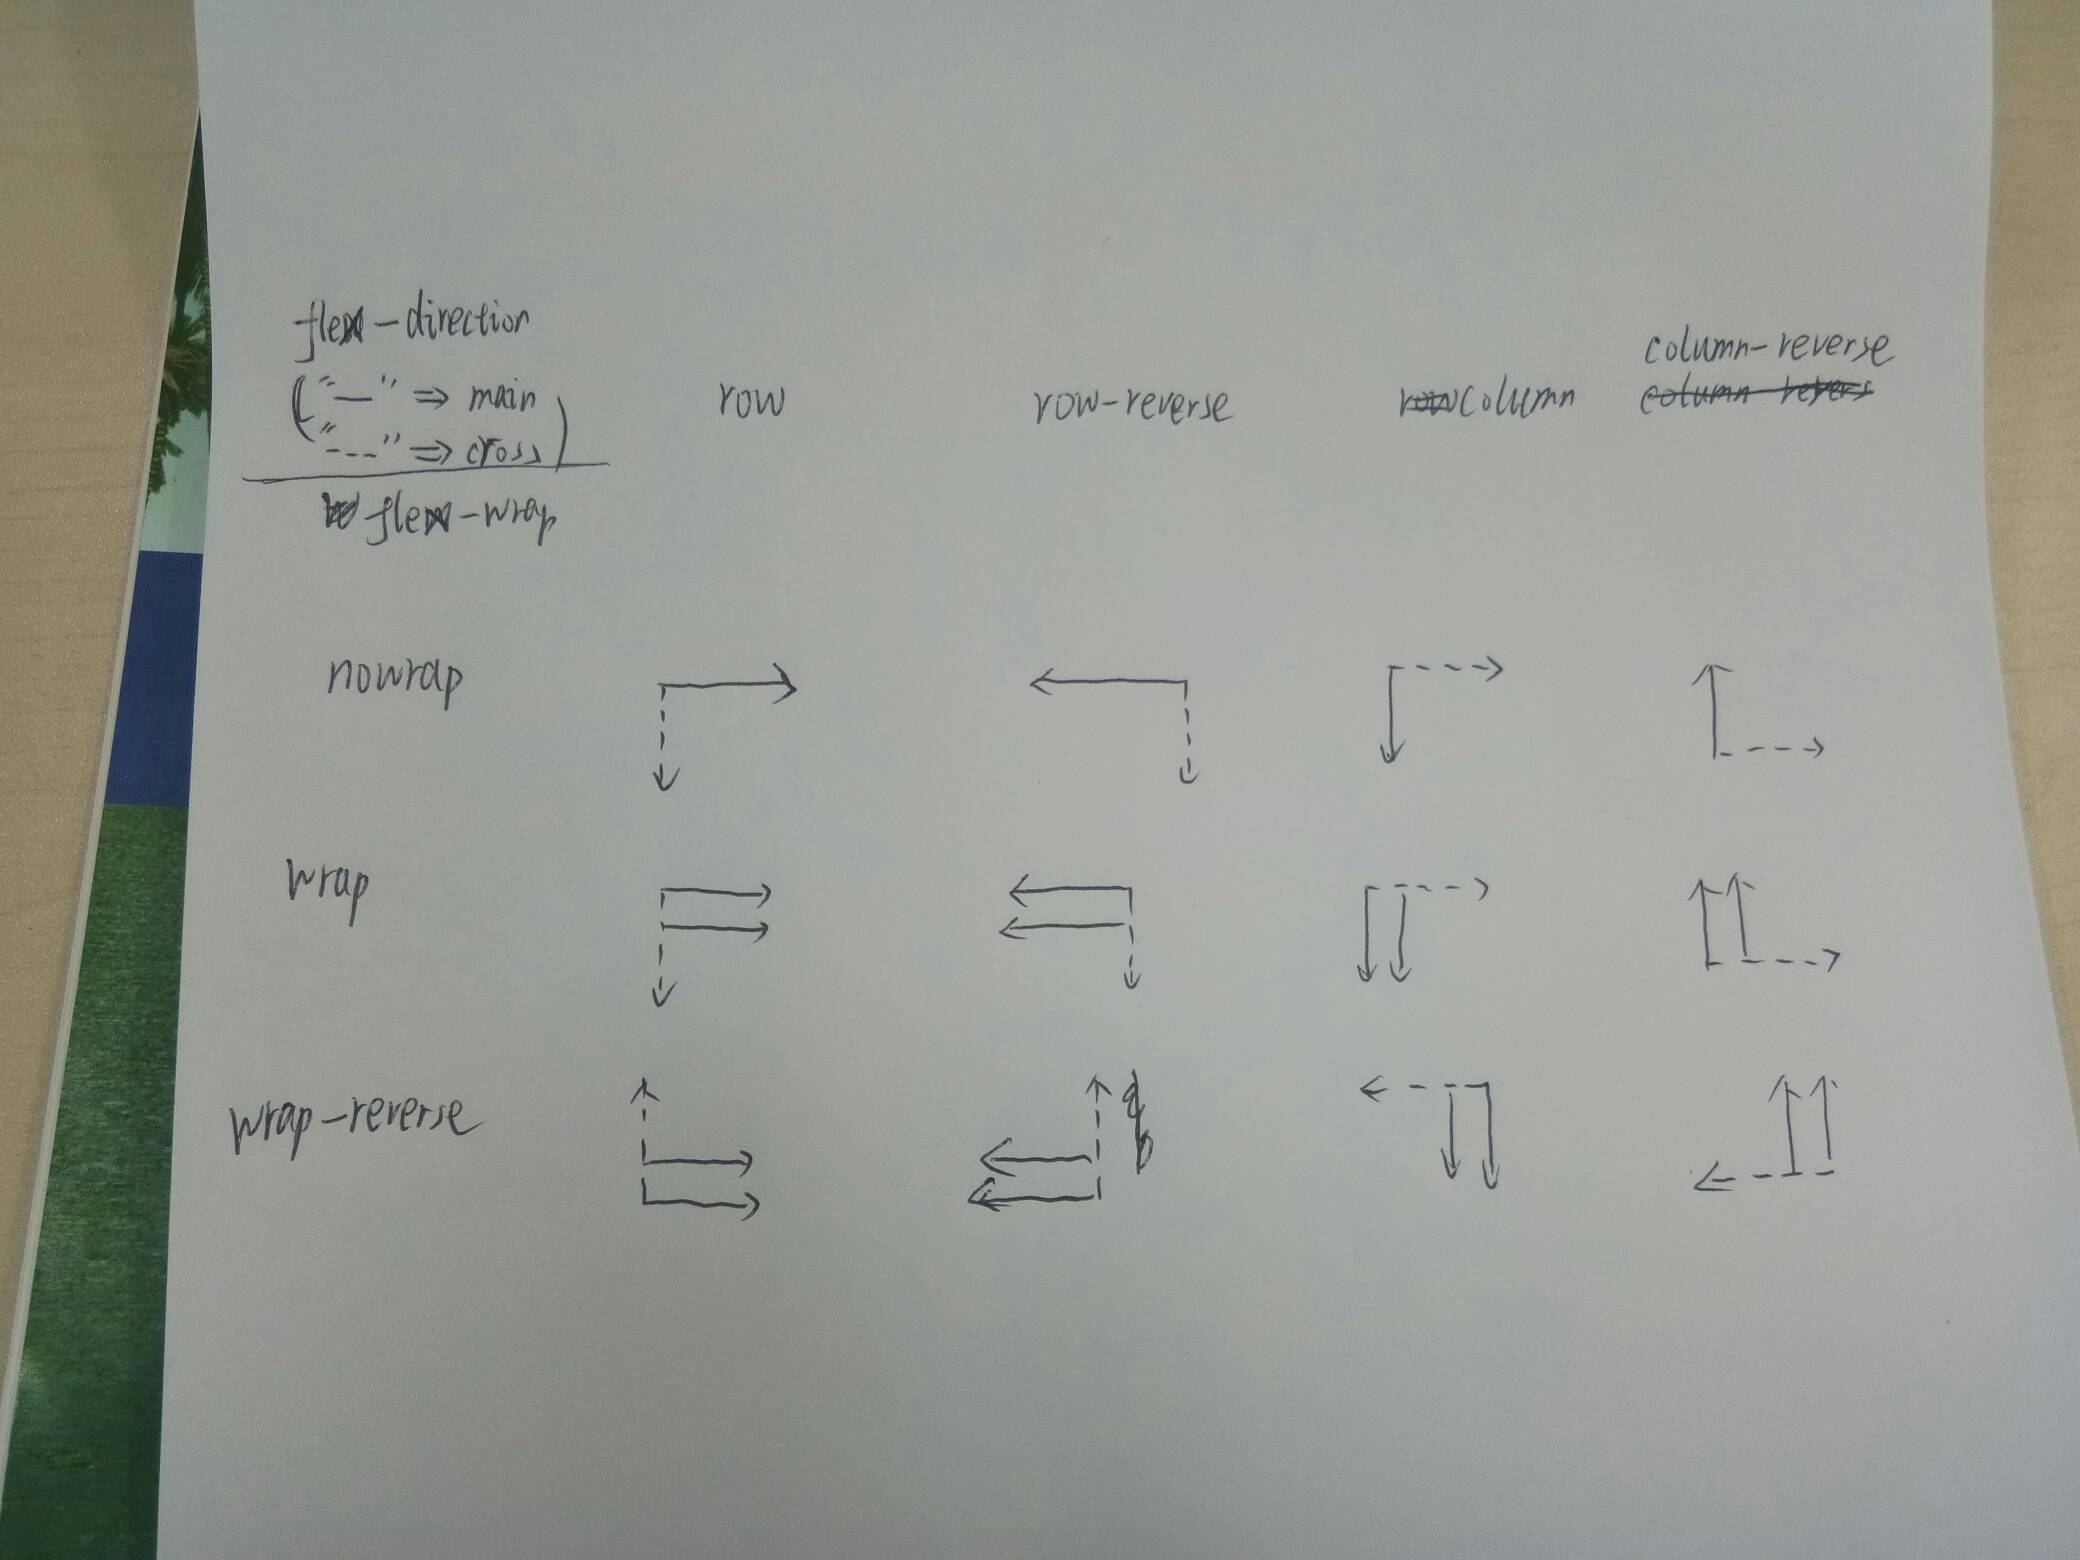 flex-direction
("—" => main
"---" => cross)
flex-wrap
row row-reverse column column-reverse
nowrap
wrap
wrap-reverse